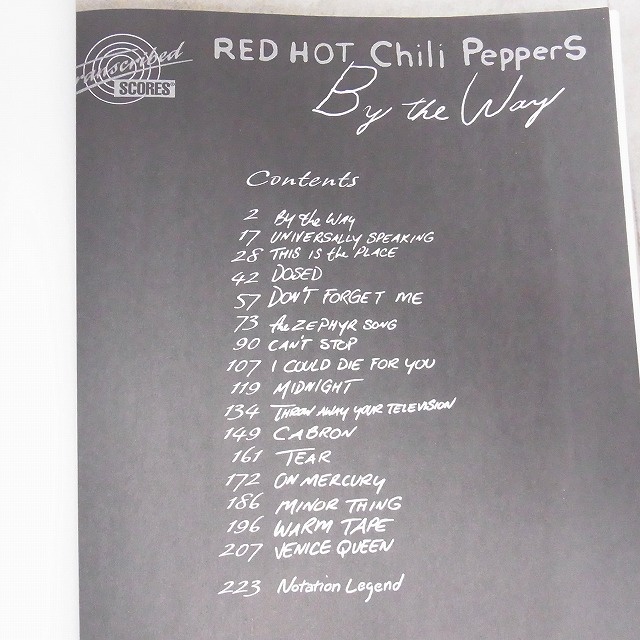 Transcribed
SCORES
RED HOT Chili PeppeRS
By the Way
Contents
2 By the Way
17 UNIVERSALLY SPEAKING
28 THIS IS the PLACE
42 DOSED
57 DON'T FORGET ME
73 the ZEPHYR SONG
90 CAN'T STOP
107 I COULD DIE FOR YOU
119 MIDNIGHT
134 THROW AWAY YOUR TELEVISION
149 CABRON
161 TEAR
172 ON MERCURY
186 MINOR THING
196 WARM TAPE
207 VENICE QUEEN
223 Notation Legend